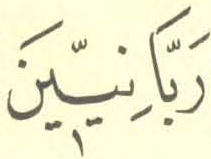 رَبَّانِيِّينَ
١